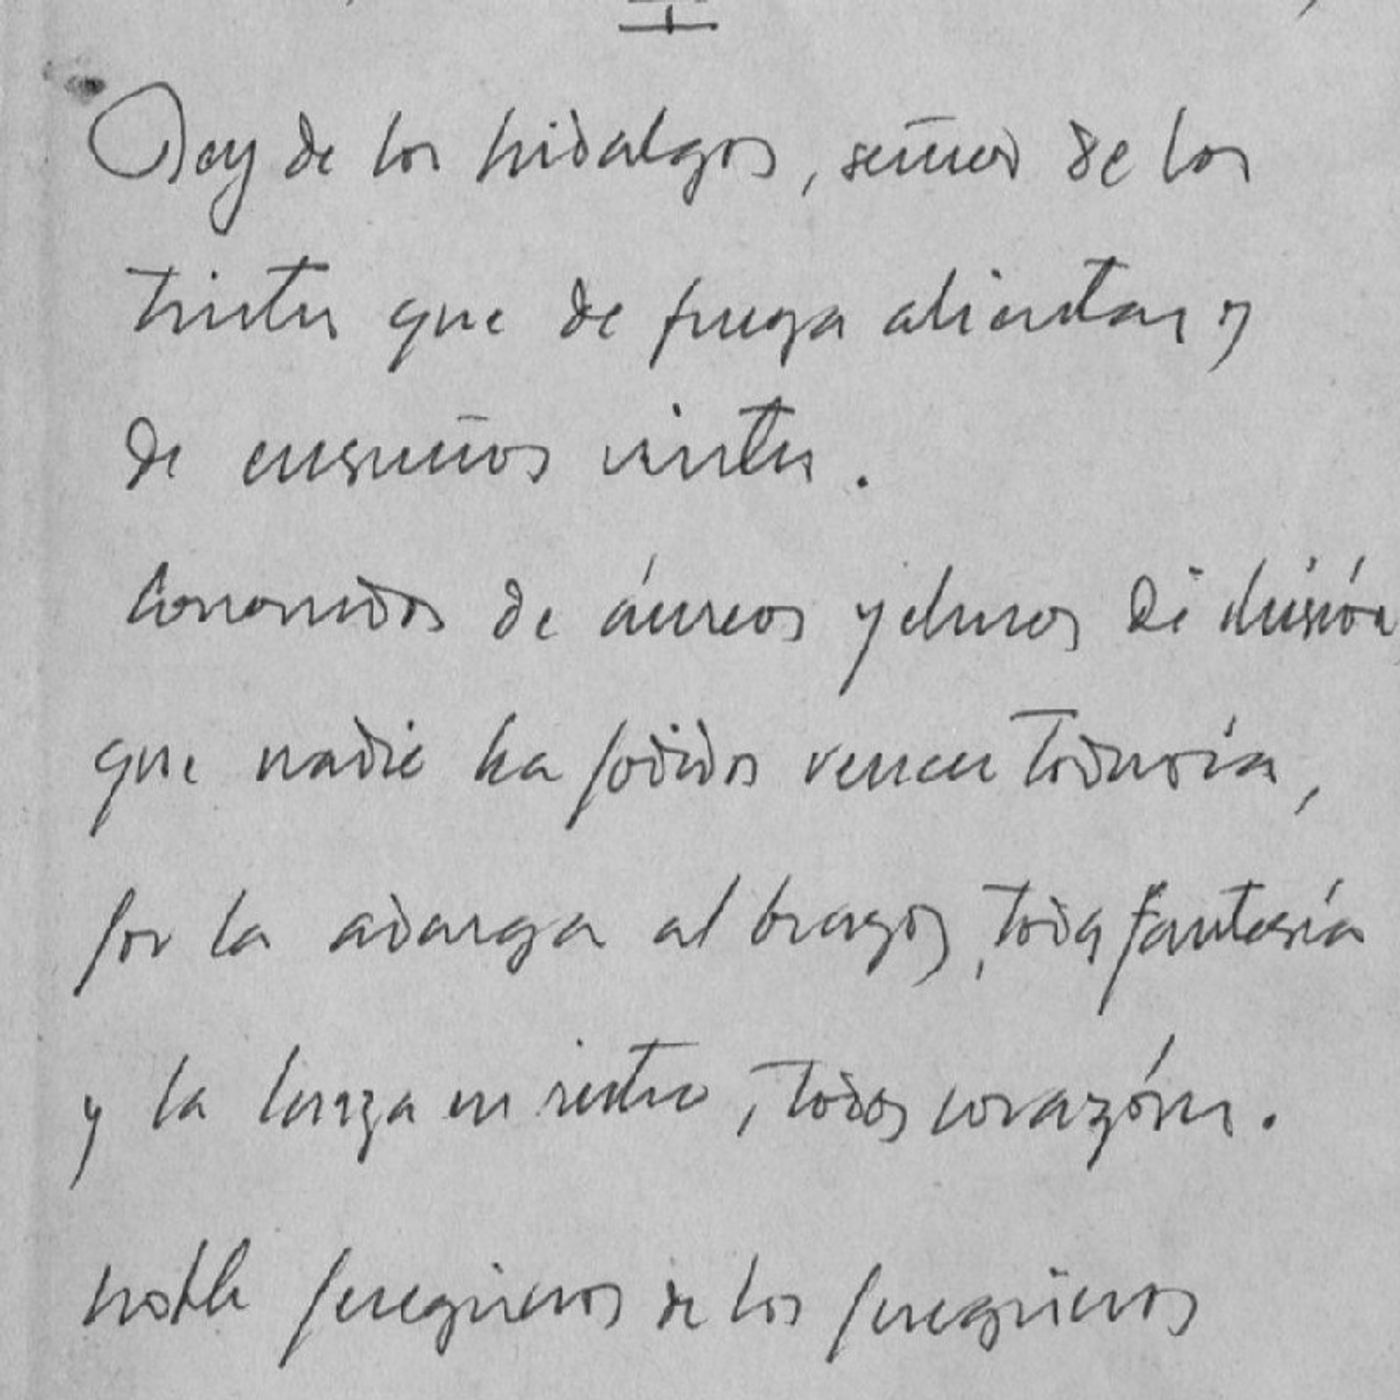 Rey de los hidalgos, señor de los
tristes que de fuerza alientan y
de ensueños vistes.
Coronados de áureos yelmos de ilusión,
que nadie ha podidos vencer todavía,
por la adarga al brazos, toda fantasía
y la lanza en ristre, todos corazónes.
noble peregrinos de los peregrinos